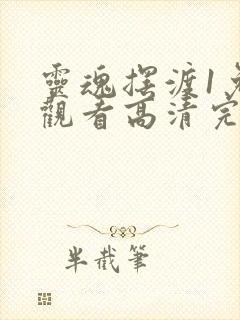 靈魂擺渡1免
觀看高清完
半截筆